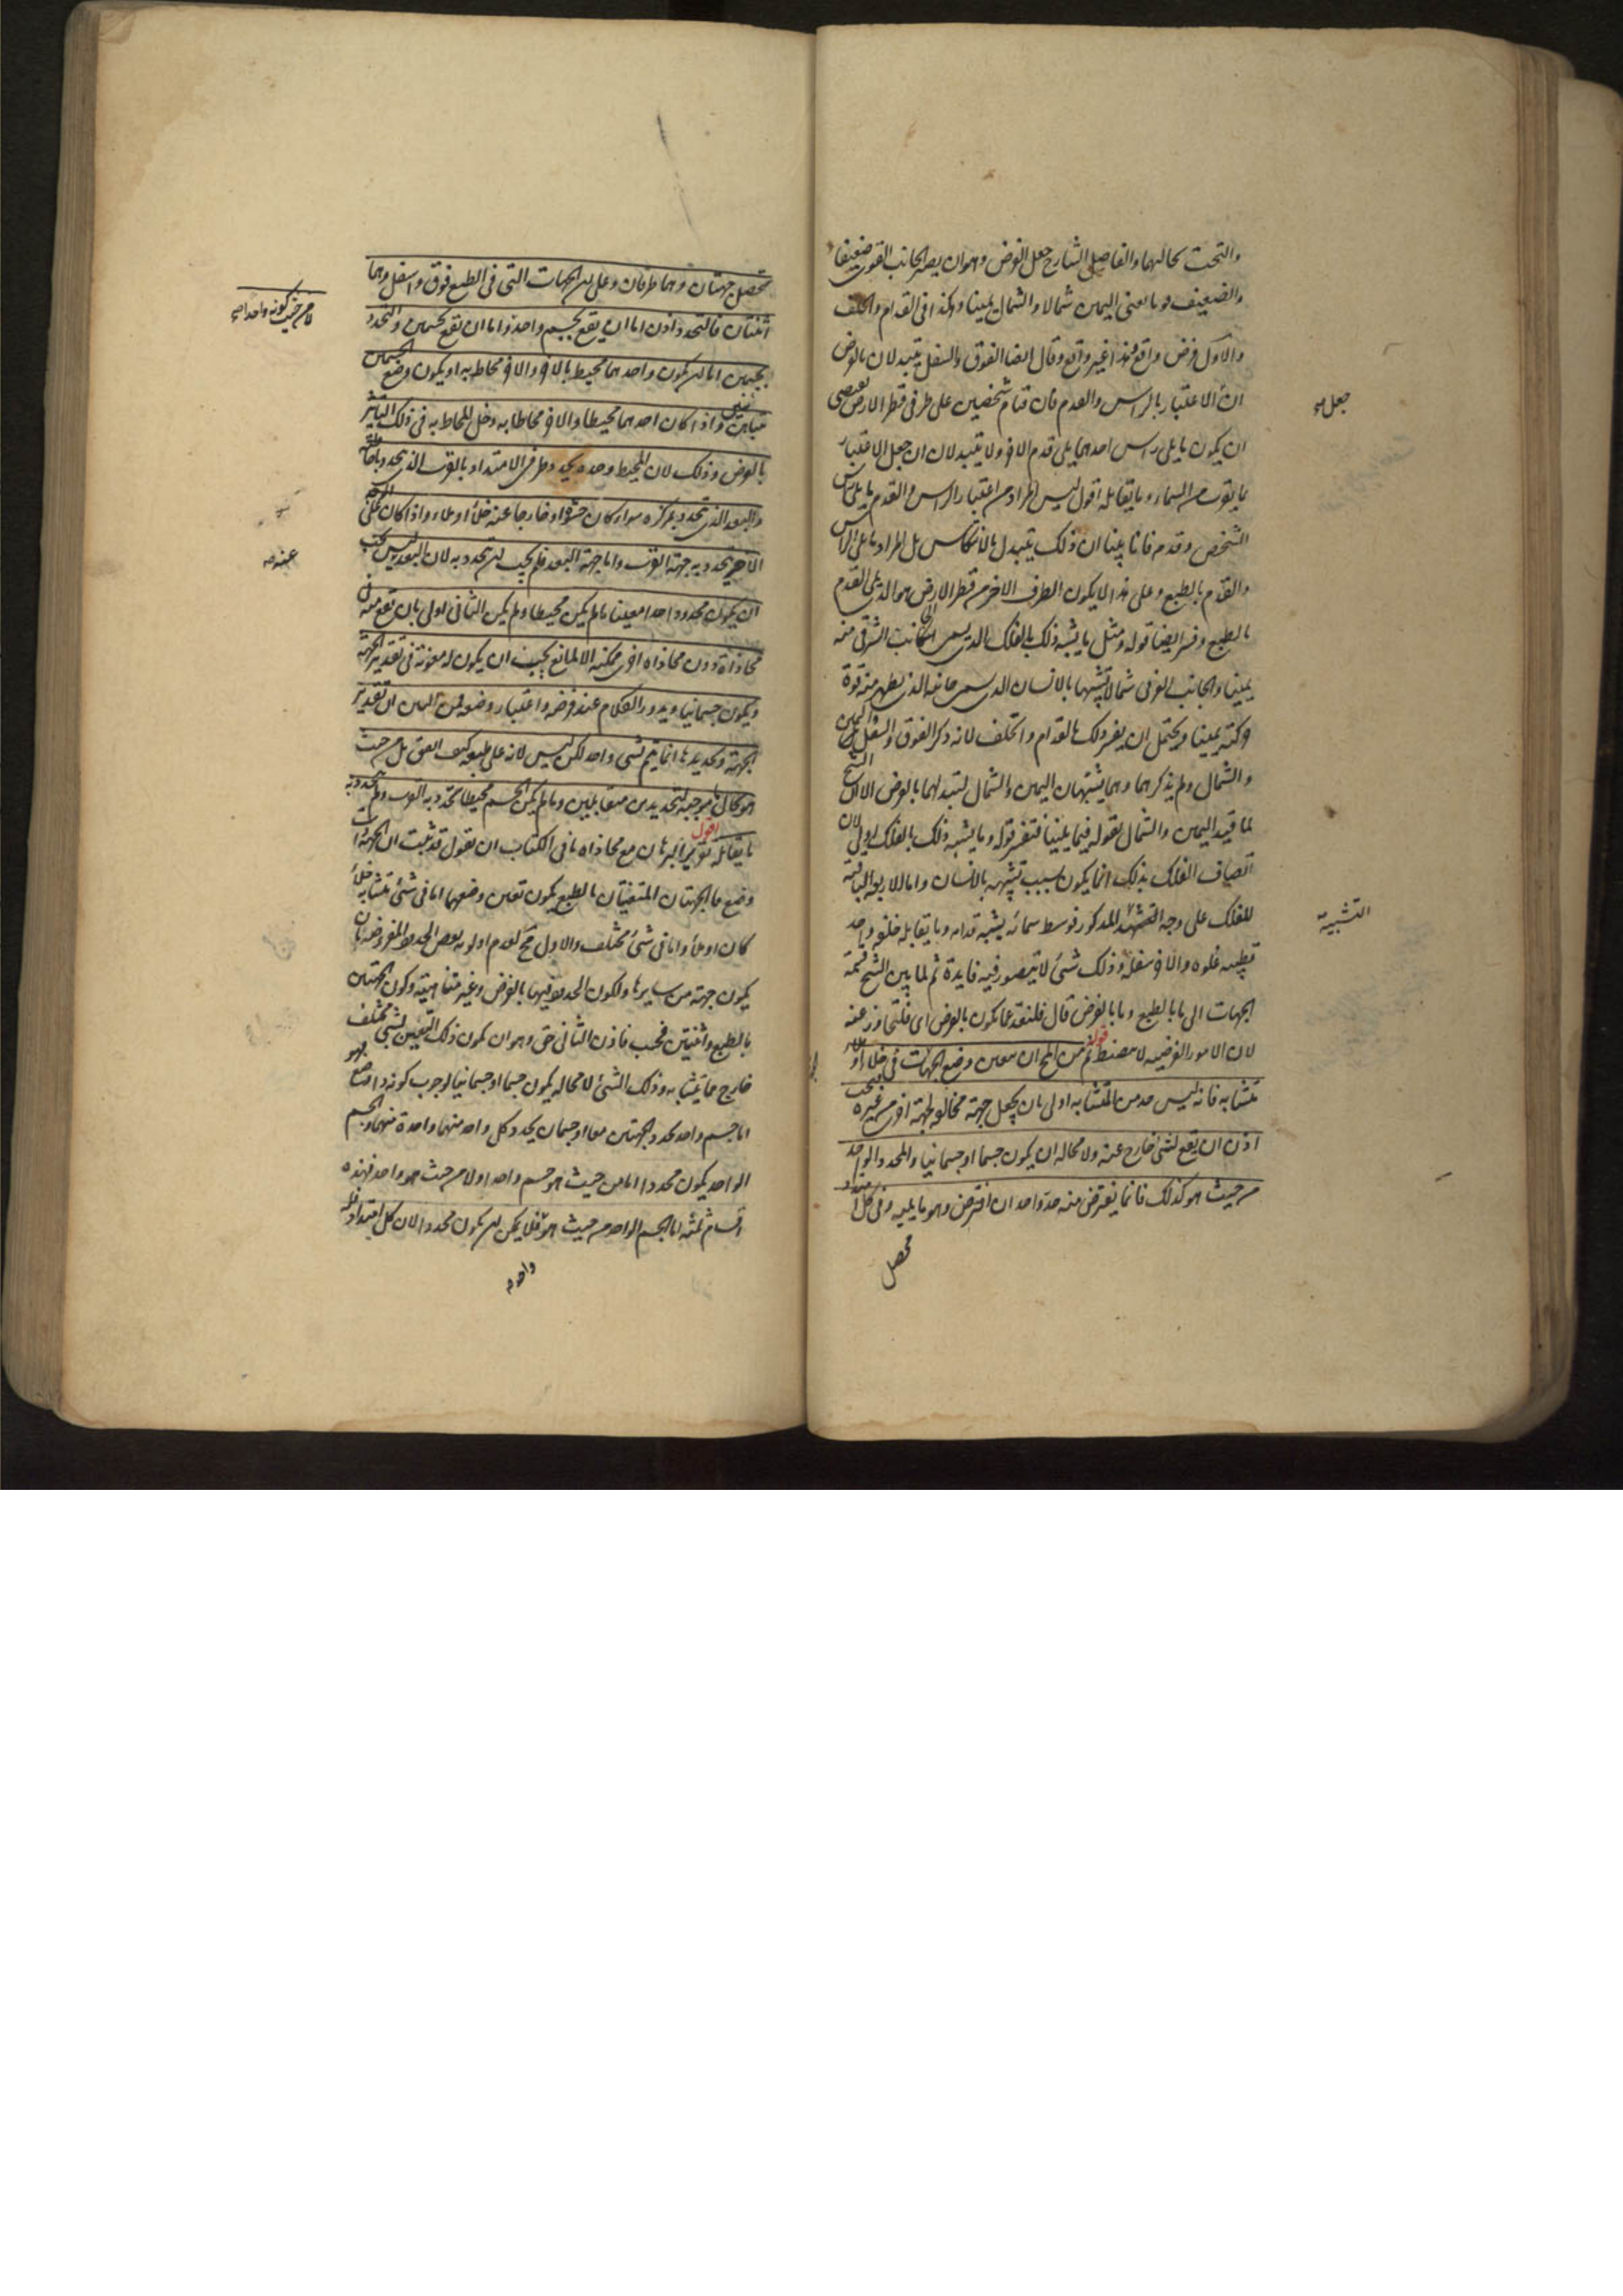 والتحت بحالهما والفاضل الشارح جعل الفرض وهو ان يصير الجانب القوى ضعيفا
والضعيف قويا اعنى اليمين شمالا والشمال يمينا وهكذا فى القدام والخلف
والاول فرض واقع وهذا غير واقع وقال ايضا الفوق والسفل يتبدلان بالفرض
ان الاعتبار بالراس والقدم فان قيام شخصين على طرفى قطر الارض يقتضى
جعل
ان يكون ما يلى راس احدهما يلى قدم الاخر ولا يتبدلان ان جعل الاعتبار
بما يقرب من السماء وما يقابله اقول ليس المراد من اعتبار الراس والقدم ما يلى راس
الشخص وقدمه فانا بينا ان ذلك يتبدل بالانتكاس بل المراد ما يلى الراس
والقدم بالطبع وعلى هذا لا يكون الطرف الاخر من قطر الارض هو الذى يلى القدم
بالطبع وفسر ايضا قوله ومثل ما يشبه ذلك بالفلك الذى يسمى الجانب الشرقى منه
يمينا والجانب الغربى شمالا تشبيها بالانسان الذى يسمى جانبه الذى يظهر منه قوة
حركته يمينا ويحتمل ان يفسر ذلك بالقدام والخلف لانه ذكر الفوق والسفل واليمين
والشمال ولم يذكرهما وهما يشبهان اليمين والشمال لتبدلهما بالفرض الا ان الشيخ
لما قيد اليمين والشمال بقوله فيما يلينا فتفسير قوله وما يشبه ذلك بالفلك اولى لان
اتصاف الفلك بذلك انما يكون بسبب تشبيهه بالانسان واما الاربع الباقية
للفلك على وجه التشبيه المذكور فوسط سمائه يشبه قدامه وما يقابله خلفه واحد
التشبيه
قطبيه علوه والاخر سفله وذلك شىء لا يتصور فيه فايدة ثم لما بين الشيخ قسمة
الجهات الى ما بالطبع وما بالفرض قال فلنعد عما يكون بالفرض اى فلنتجاوز عنه
لان الامور الفرضية لا تنضبط قوله ثم من المحال ان يتعين وضع الجهات فى خلاء او ملاء
متشابه فانه ليس حد من المتشابه اولى بان يجعل جهة مخالفة لجهة اخرى من غيره فيجب
اذن ان يقع لشىء خارج عنه ولا محالة ان يكون جسما او جسمانيا والمحدد الواحد
من حيث هو كذلك فانما يفترض منه حد واحد ان افترض وهو ما يليه وفى كل امتداد
محصل
تحصل جهتان وهما طرفان وعلى ان الجهات التى فى الطبع فوق واسفل وهما
اثنتان فالتحدد اذن اما ان يقع بجسم واحد واما ان يقع بجسمين والتحدد
بجسمين اما ان يكون واحدهما محيط بالاخر والاخر محاط به او يكون وضع الجسمين
متباينين واذا كان احدهما محيطا والاخر محاطا به دخل المحاط به فى ذلك التاثير
بالعرض وذلك لان المحيط وحده يحدد طرفى الامتداد بالقرب الذى يتحدد باحاطته
والبعد الذى يتحدد بمركزه سواء كان حشوه او خارجا عنه خلاء او ملاء واذا كان على الوجه
الآخر يتحدد به جهة القرب واما جهة البعد فلم يجب ان يتحدد به لان البعد ليس يجب
عنه
ان يكون محدودا حدا معينا ما لم يكن محيطا ولم يكن الثانى اولى بان يقع منه فى
محاذاة دون محاذاة اخرى ممكنة الا لمانع يجب ان يكون له معونة فى تقدير الجهة
ويكون جسمانيا ويدور الكلام عند فرضه واعتبار وضعه فمن البين ان تقدير
الجهة وتحديدها انما يتم لشى واحد لكن ليس لانه على طبيعه كيف اتفق بل من حيث
هو بحال ما موجبة لتحديدين متقابلين وما لم يكن الجسم محيطا تحدد به القرب ولم يتحدد به
ما يقابله اقول تقرير البرهان مع محاذاة ما فى الكتاب ان نقول قد ثبت ان الجهة ذات
وضع فالجهتان المتعينتان بالطبع يكون تعين وضعهما اما فى شىء متشابه خلأ
كان او ملأ واما فى شىء مختلف والاول محال لعدم اولوية بعض الحدود المفروضة بان
يكون جهة من سايرها ولكون الحدود فيهما بالفرض وغير متناهية وكون الجهتين
بالطبع واثنتين فحسب فاذن الثانى حق وهو ان يكون ذلك التعين لشىء مختلف
خارج عما يتشابه وذلك الشىء لا محالة يكون جسما او جسمانيا لوجوب كونه ذا وضع فهو
اما جسم واحد يحدد الجهتين معا او جسمان يحدد كل واحد منهما واحدة منهما والجسم
الواحد يكون محددا اما من حيث هو جسم واحد او لا من حيث هو واحد فهذه
اقسام ثلثة اما الجسم الواحد من حيث هو فلا يمكن ان يكون محددا لان كل امتداد فله